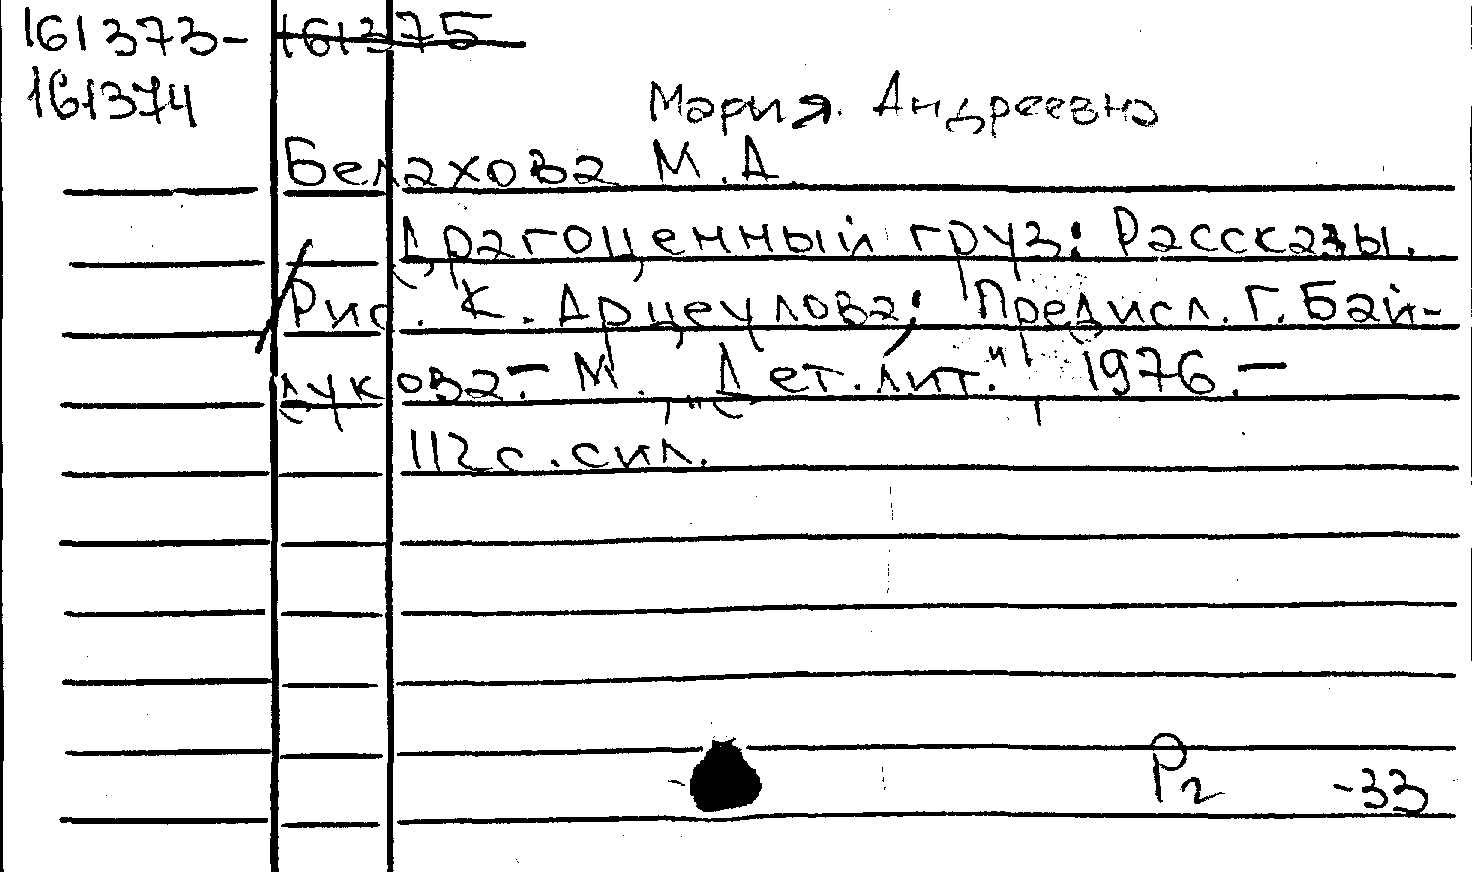 161373- 161375
161374
Мария. Андреевна
Белахова М.А.
Драгоценный груз: Рассказы.
Рис. К. Арцеулова; Предисл. Г. Бай-
дукова.- М., "Дет.лит.", 1976.-
112с. сил.
Р2 -33